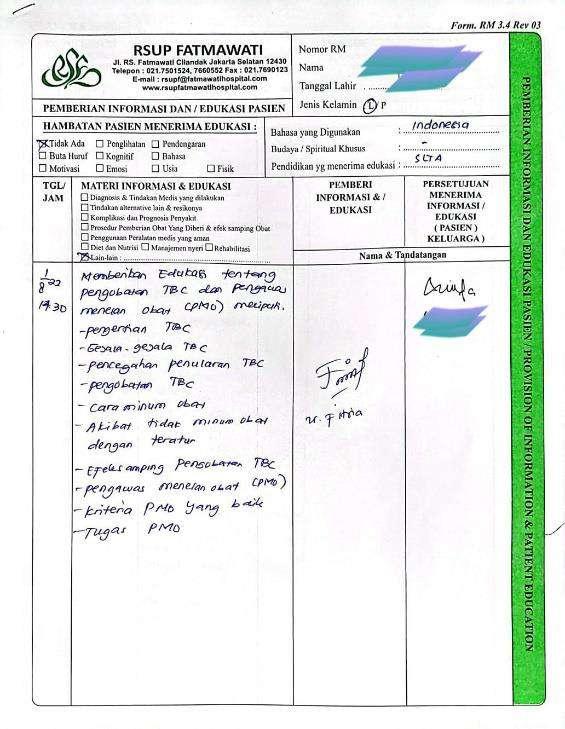 Form. RM 3.4 Rev 03
RSUP FATMAWATI
Jl. RS. Fatmawati Cilandak Jakarta Selatan 12430
Telepon : 021.7501524, 7660552 Fax : 021.7690123
E-mail : rsupf@fatmawatihospital.com
www.rsupfatmawatihospital.com
PEMBERIAN INFORMASI DAN / EDUKASI PASIEN
Nomor RM
Nama
Tanggal Lahir
Jenis Kelamin L P
HAMBATAN PASIEN MENERIMA EDUKASI :
Tidak Ada Penglihatan Pendengaran
Buta Huruf Kognitif Bahasa
Motivasi Emosi Usia Fisik
Bahasa yang Digunakan : Indonesia
Budaya / Spiritual Khusus : -
Pendidikan yg menerima edukasi : SLTA
TGL/
JAM
MATERI INFORMASI & EDUKASI
Diagnosis & Tindakan Medis yang dilakukan
Tindakan alternative lain & resikonya
Komplikasi dan Prognosis Penyakit
Prosedur Pemberian Obat Yang Diberi & efek samping Obat
Penggunaan Peralatan medis yang aman
Diet dan Nutrisi Manajemen nyeri Rehabilitasi
Lain-lain :
PEMBERI
INFORMASI & /
EDUKASI
PERSETUJUAN
MENERIMA
INFORMASI /
EDUKASI
( PASIEN )
KELUARGA )
Nama & Tandatangan
1/8 22
14.30
Memberikan Edukasi tentang
pengobatan TBC dan pengawas
menelan obat (PMO) meliputi.
- pengertian TBC
- Gejala-gejala TBC
- pencegahan penularan TBC
- pengobatan TBC
- Cara minum obat
- Akibat tidak minum obat
dengan teratur
- Efek samping Pengobatan TBC
- pengawas menelan obat (PMO)
- Kriteria PMO yang baik
- Tugas PMO
PEMBERIAN INFORMASI DAN EDUKASI PASIEN / PROVISION OF INFORMATION & PATIENT EDUCATION